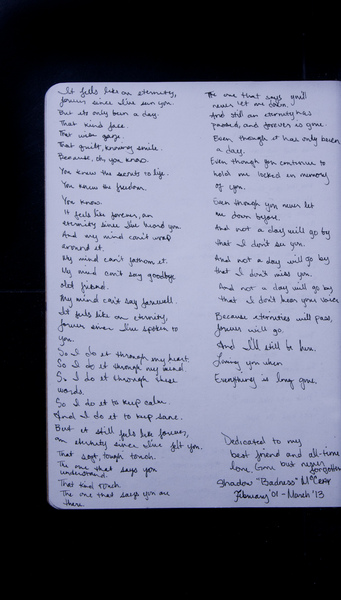 It feels like an eternity,
forever since I've seen you.
But its only been a day.
That kind face.
That wise gaze.
That quiet, knowing smile.
Because, oh you know.
You knew the secrets to life.
You knew the freedom.
You know.
It feels like forever, an
eternity since I've heard you.
And my mind can't wrap
around it.
My mind can't fathom it.
My mind can't say goodbye
old friend.
My mind can't say farewell.
It feels like an eternity,
forever since I've spoken to
you.
So I do it through my heart.
So I do it through my mind.
So I do it through these
words.
So I do it to keep calm.
And I do it to keep sane.
But it still feels like forever,
an eternity since I've felt you.
That soft, tough touch.
The one that says you
understand.
That kind touch.
The one that says you are
there.
The one that says you'll
never let me down.
And still an eternity has
passed, and forever is gone.
Even though it has only been
a day.
Even though you continue to
hold me locked in memory
of you.
Even though you never let
me down before.
And not a day will go by
that I don't see you.
And not a day will go by
that I don't miss you.
And not a day will go by
that I don't hear your voice.
Because eternities will pass,
forever will go.
And I'll still be here.
Loving you when
Everything is long gone.
Dedicated to my
best friend and all-time
love. Gone but never
forgotten
Shadow "Badness"
February '01 - March '13